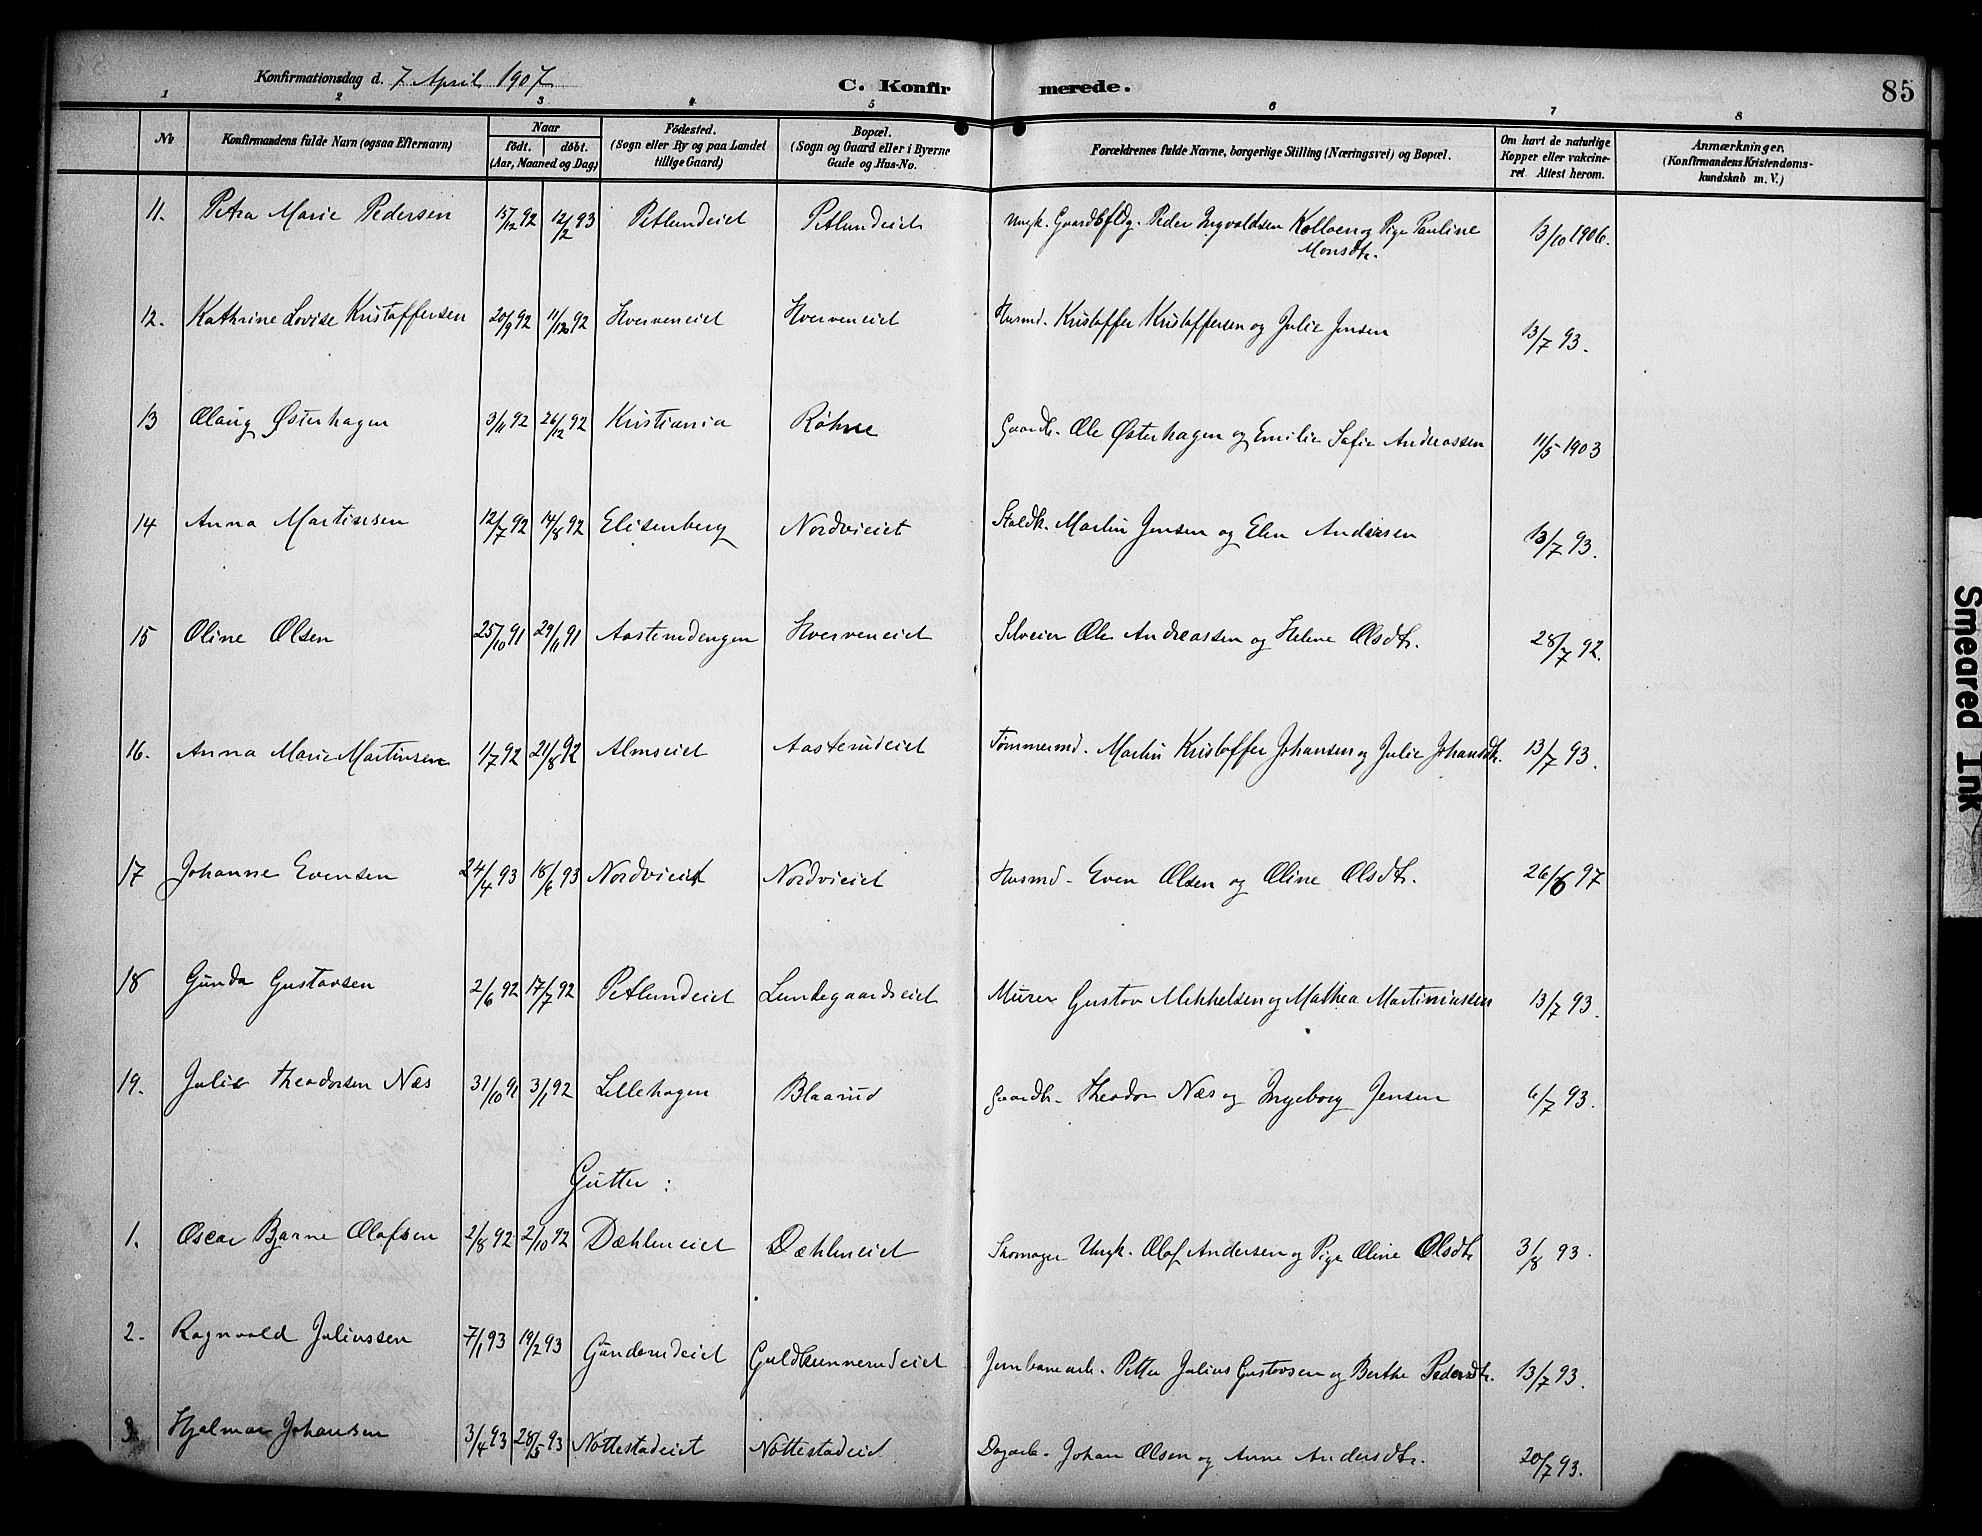 Konfirmationsdag d. 7 April 1907
C. Konfirmerede.
85
1 2 3 4 5 6 7 8
No
Konfirmandens fulde Navn (ogsaa Efternavn)
Naar
födt. döbt.
(Aar, Maaned og Dag)
Födested.
(Sogn eller By og paa Landet
tillige Gaard)
Bopæl.
(Sogn og Gaard eller i Byerne
Gade og Hus-No.
Forældrenes fulde Navne, borgerlige Stilling (Næringsvei) og Bopæl.
Om havt de naturlige
Kopper eller vakcine-
ret. Attest herom.
Anmærkninger.
(Konfirmandens Kristendoms-
kundskab m. V.)
11. Petra Marie Pedersen 15/12 92 12/2 93 Petlundeiet Petlundeiet Ungk. Gaardbfldg. Peder Ingvaldsen Kolloen og Pige Pauline 13/10 1906.
Monsdtr.
12. Kathrine Lovise Kristoffersen 20/9 92 11/12 92 Hverveneiet Hverveneiet Husmd. Kristoffer Kristoffersen og Julie Jensen 13/7 93.
13 Olaug Østerhagen 3/11 92 26/12 92 Kristiania Røhne Gaardbr. Ole Østerhagen og Emilie Sofie Andreassen 11/5 1903
14 Anna Martinsen 12/7 92 14/8 92 Elisenberg Nordvieiet Staldk. Martin Jensen og Elen Andersen 13/7 93.
15 Oline Olsen 25/10 91 29/11 91 Aasterudengen Hverveneiet Selveier Ole Andreassen og Helene Olsdtr. 28/7 92.
16. Anna Marie Martinsen 1/7 92 21/8 92 Almseiet Aasterudeiet Tømmermd. Martin Kristoffer Johansen og Julie Johansdtr. 13/7 93.
17 Johanne Evensen 24/4 93 18/6 93 Nordvieiet Nordvieiet Husmd. Even Olsen og Oline Olsdtr. 26/6 97
18 Gunda Gustavsen 2/6 92 17/7 92 Petlundeiet Lundegaardseiet Murer Gustav Mikkelsen og Mathea Martiniussen 13/7 93.
19. Julie Theodorsen Næs 31/10 91 3/1 92 Lillehagen Blaarud Gaardbr. Theodor Næs og Ingeborg Jensen 6/7 93.
Gutter:
1. Oscar Bjarne Olafsen 2/8 92 2/10 92 Dæhleneiet Dæhleneiet Skomager Ungk. Olaf Andersen og Pige Oline Olsdtr 3/8 93.
2. Ragnvald Juliussen 7/1 93 19/2 93 Gunderudeiet Guldbrunnerudeiet Jernbanearb. Petter Julius Gustavsen og Berthe Pedersdtr. 13/7 93.
3. Hjalmar Johansen 3/4 93 28/5 93 Nøttestadeiet Nøttestadeiet Dagarb. Johan Olsen og Anne Andersdtr. 20/7 93.
Smeared Ink